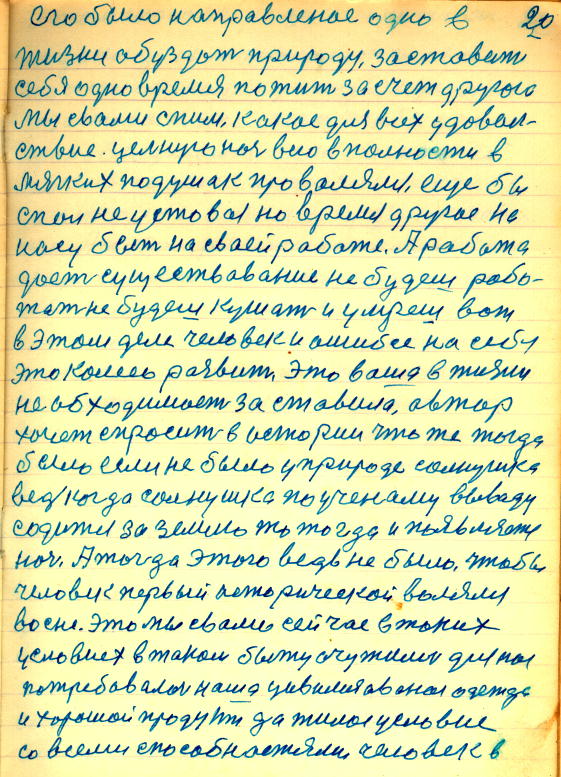 его было направленое одно в 20
жизни обуздат природу, заставит
себя одновремя пожит за счет другога
Мы свами спим, какое для всех удовол-
ствие. целиую ноч всю вполности в
мягких подушках провалялис, еще бы
спал не уставал но время другое на
носу бьет на сваей работе. А работа
дает существавание не будеш рабо-
тат не будеш кушат и умреш вот
в этом деле человек и ошибся на себя
это колесо развит. Это ваша в жизни
не обходимост заставила, автор
хочет спросит в истории что же тогда
было если не было у природе солнушка
вед когда солнушка по ученаму вываду
содится за землю то тогда и появляется
ноч. А тогда этого ведь не было, чтобы
человек первый исторической волялся
восне. Это мы свами сейчас в таких
условиях в таком быту очутилис для нас
потребовалос наша цивилизованая одежда
и хороший продукт да жилое условие
со всеми способностями человек в